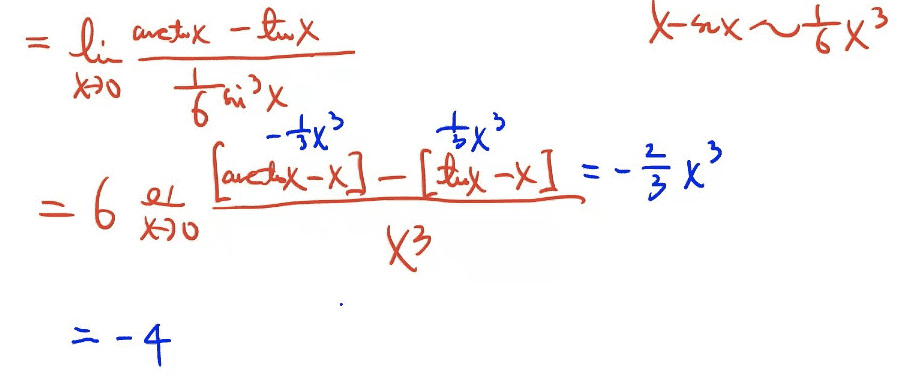 = lim x→0 (arctan x - tan x) / (1/6 sin³ x)    x - sin x ~ 1/6 x³
-1/3 x³    1/3 x³
= 6 lim x→0 ([arctan x - x] - [tan x - x]) / x³ = -2/3 x³
= -4